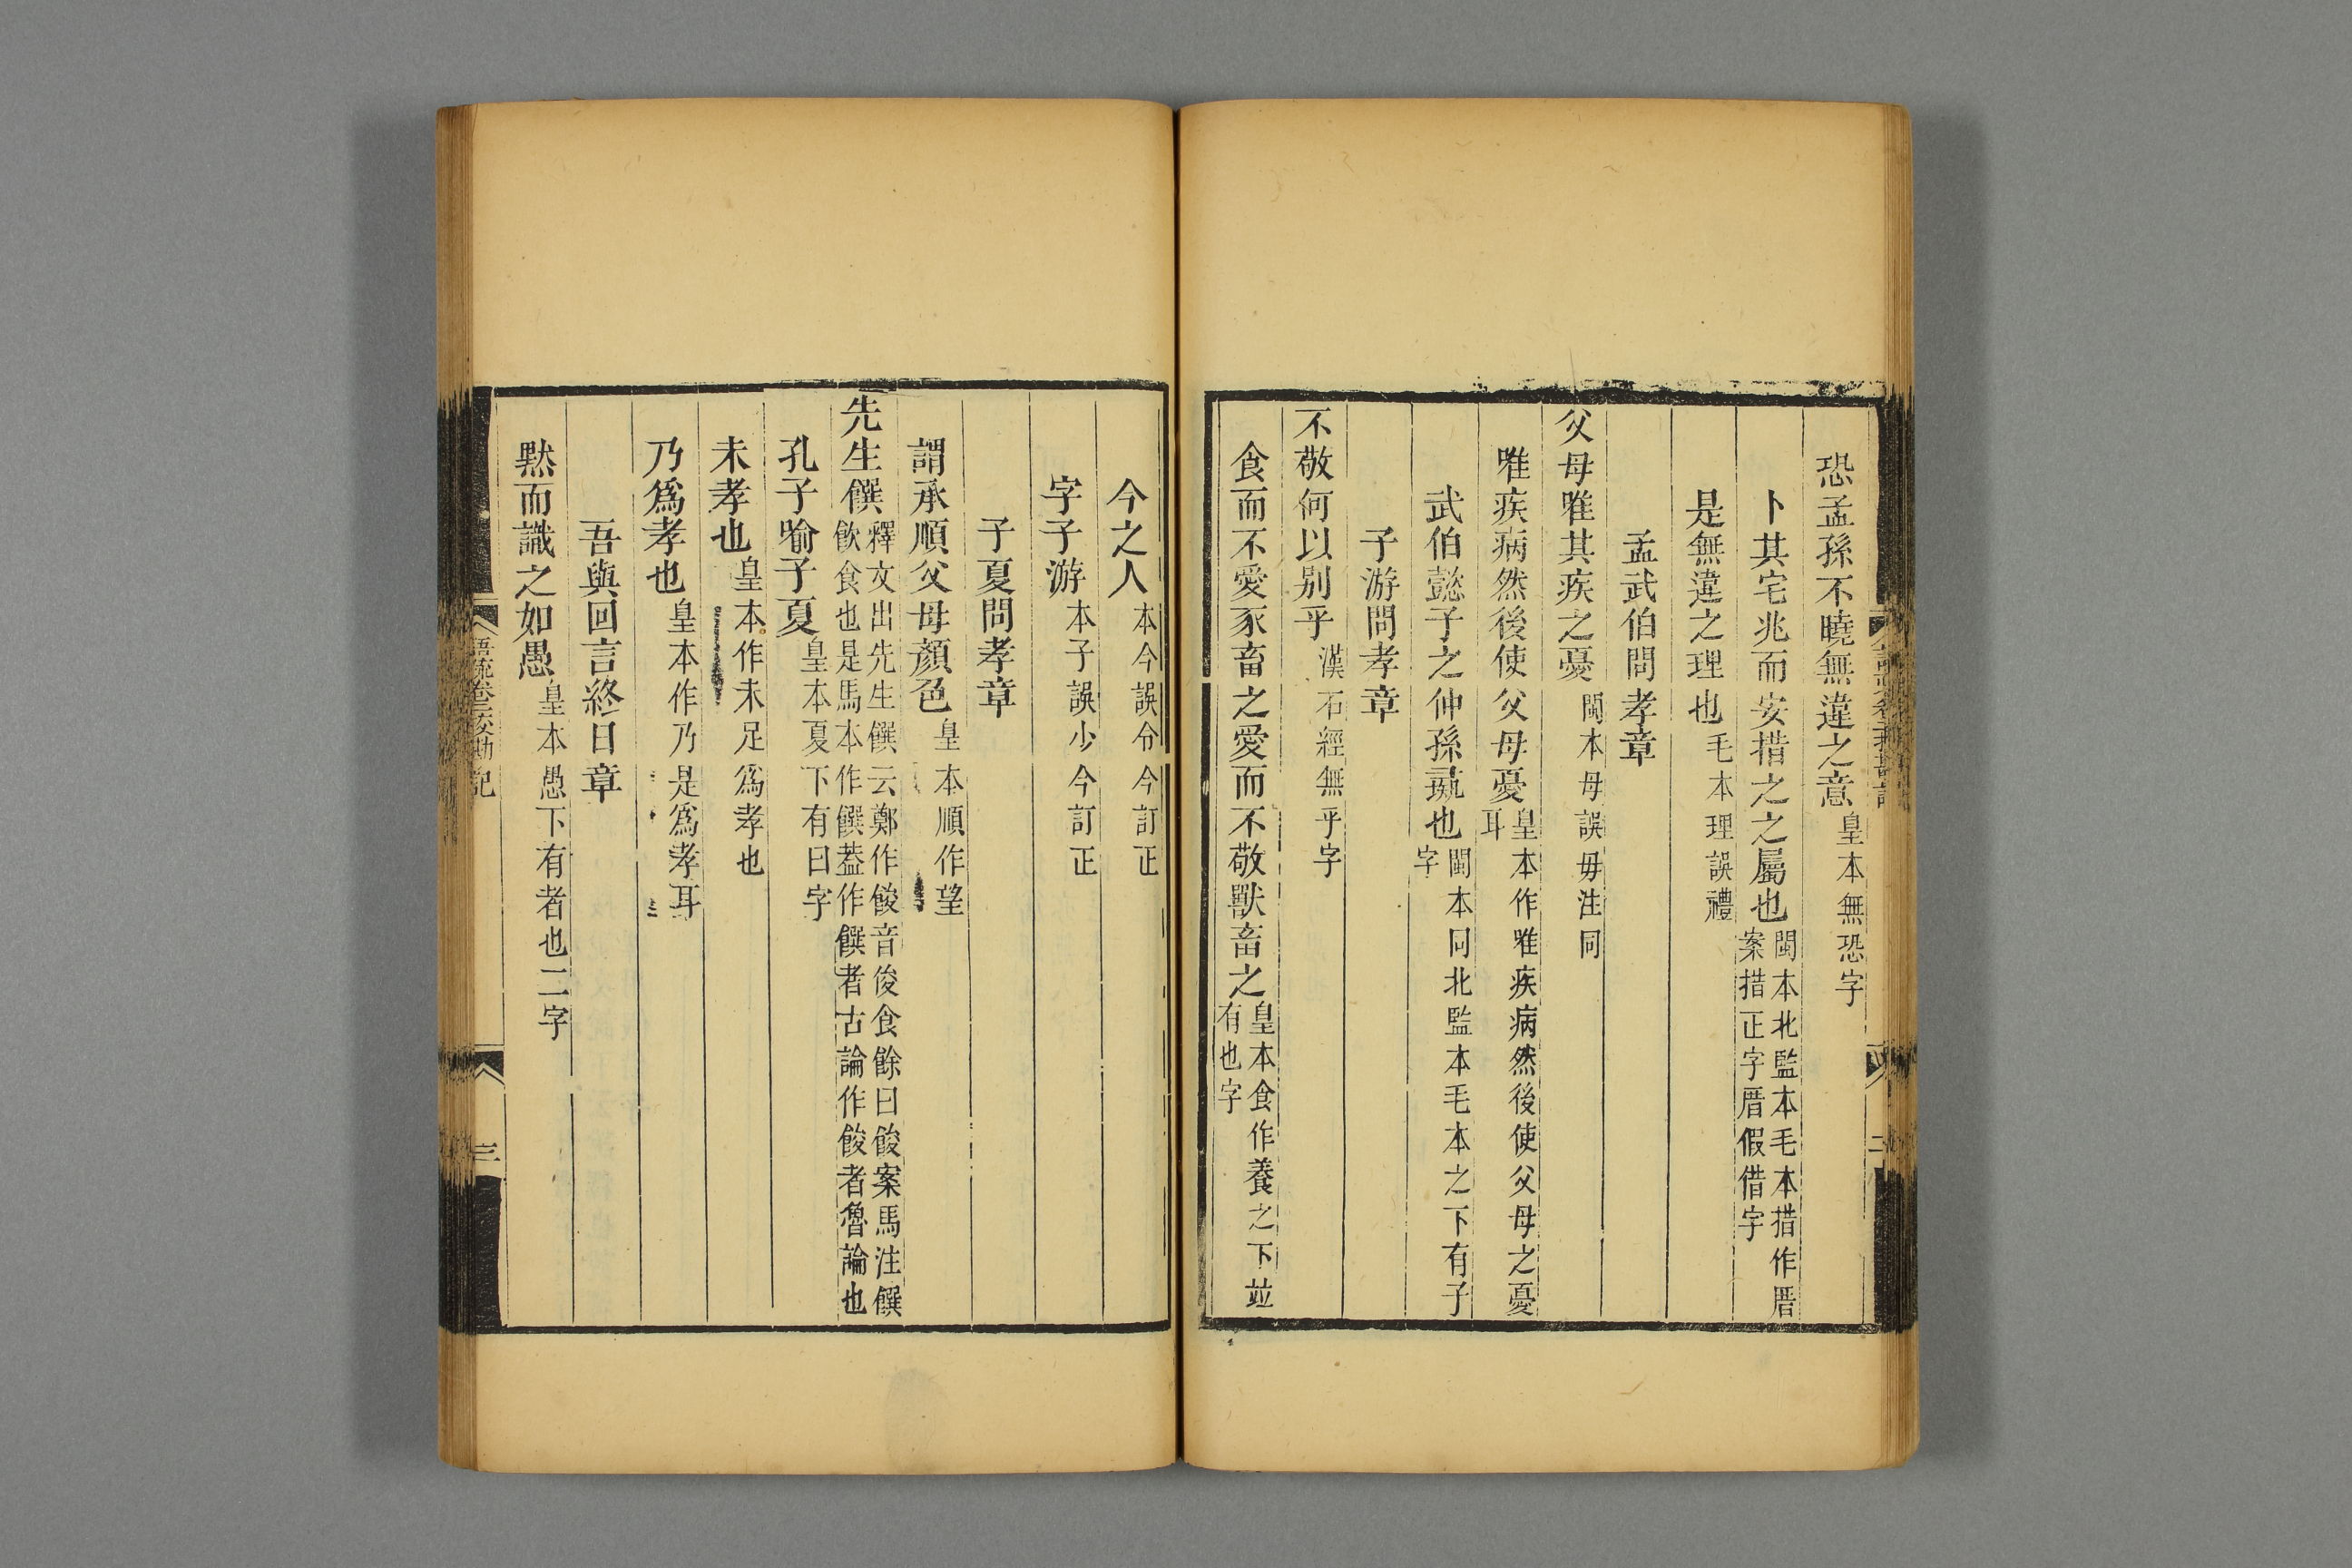 恐孟孫不曉無違之意皇本無恐字
卜其宅兆而安措之之屬也閩本北監本毛本措作厝案措正字厝假借字
是無違之理也毛本理誤禮
孟武伯問孝章
父母唯其疾之憂閩本母誤毋注同
唯疾病然後使父母憂皇本作唯疾病然後使父母之憂耳
武伯懿子之仲孫彘也閩本同北監本毛本之下有子字
子游問孝章
不敬何以别乎漢石經無乎字
食而不愛豕畜之愛而不敬獸畜之皇本食作養之下並有也字
今之人本今誤分今訂正
字子游本子誤少今訂正
子夏問孝章
謂承順父母顏色皇本順作望
先生饌釋文出先生饌云鄭作餕音俊食餘曰餕案馬注饌飲食也是馬本作饌葢作饌者古論作餕者魯論也
孔子喻子夏皇本夏下有曰字
未孝也皇本作未足爲孝也
乃爲孝也皇本作乃是爲孝耳
吾與回言終日章
黙而識之如愚皇本愚下有者也二字
語疏卷二校勘記
三